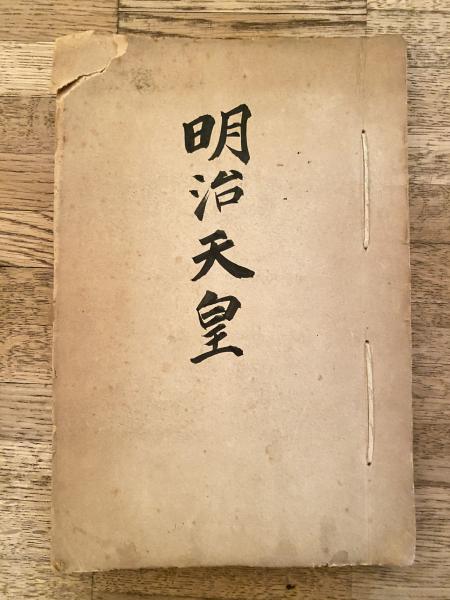 明治天皇